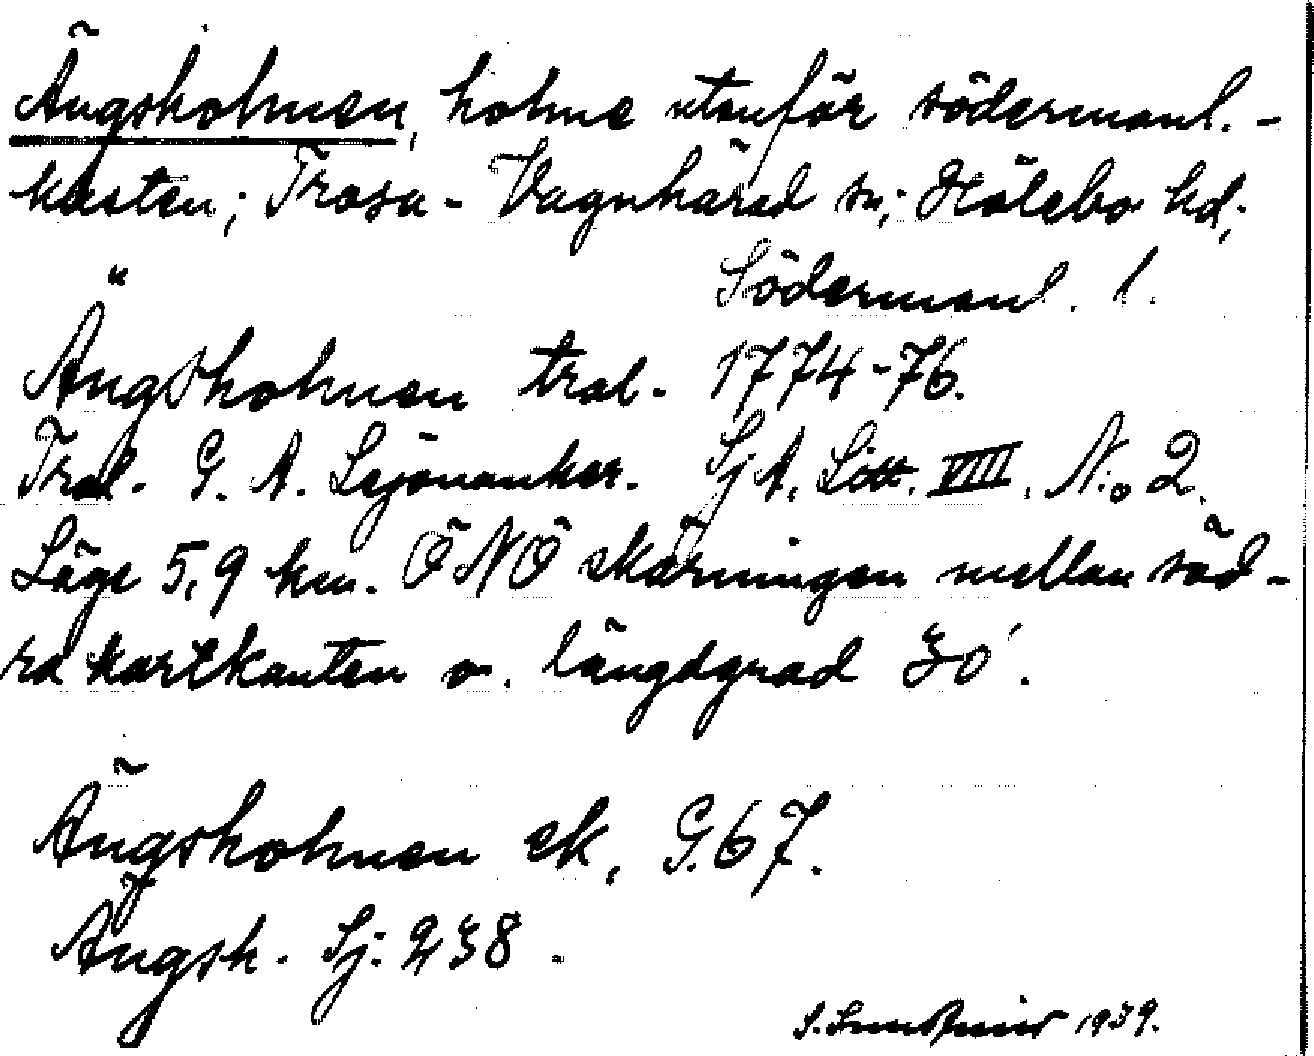 Ängsholmen, holme utanför södermanl.-
kusten; Trosa-Vagnhärad sn; Hölebo hd;
Södermanl. l.
Ängsholmen tral. 1774-76.
Tral. G. A. Lejonanker. SjA. Litt. VIII. N:o 2.
Läge 5,9 km. ÖNÖ skärningen mellan söd-
ra kartkanten o. längdgrad 30'.
Ängsholmen ek. G.67.
Ängsh. Sj: 238.
S. 1939.